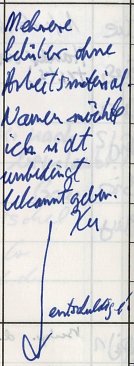 Mehrere
Schüler ohne
Arbeitsmaterial.
Namen möchte
ich nicht
unbedingt
bekannt geben.
entschuldigt